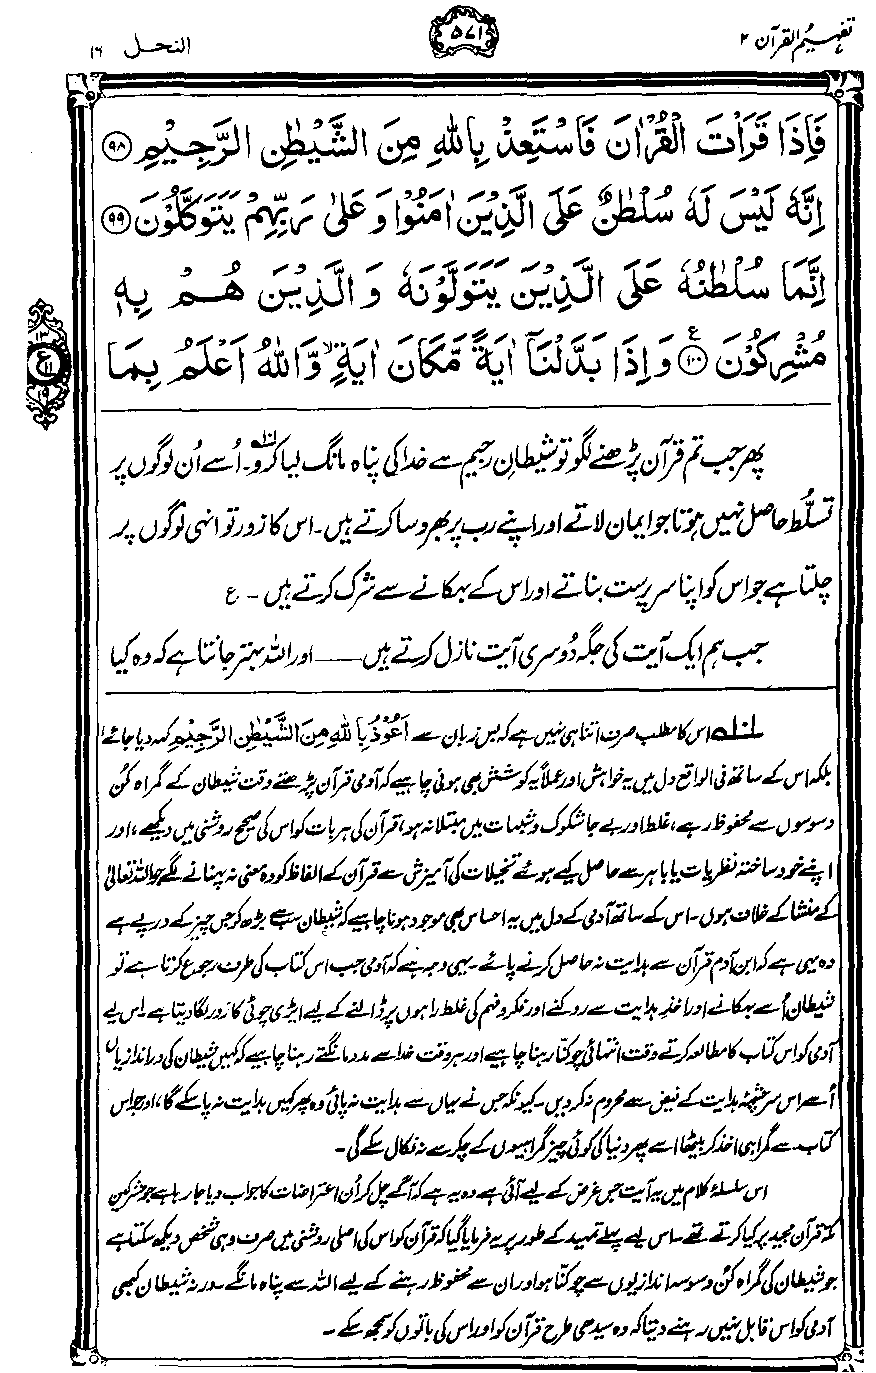 تفہیم القرآن ۲
۵۷۱
النحل ۱۶
فَاِذَا قَرَاْتَ الْقُرْاٰنَ فَاسْتَعِذْ بِاللّٰهِ مِنَ الشَّيْطٰنِ الرَّجِيْمِ ﴿۹۸﴾
اِنَّهٗ لَيْسَ لَهٗ سُلْطٰنٌ عَلَى الَّذِيْنَ اٰمَنُوْا وَ عَلٰى رَبِّهِمْ يَتَوَكَّلُوْنَ ﴿۹۹﴾
اِنَّمَا سُلْطٰنُهٗ عَلَى الَّذِيْنَ يَتَوَلَّوْنَهٗ وَ الَّذِيْنَ هُمْ بِهٖ
مُشْرِكُوْنَ ﴿۱۰۰﴾ۧ وَ اِذَا بَدَّلْنَاۤ اٰيَةً مَّكَانَ اٰيَةٍ ۙ وَّ اللّٰهُ اَعْلَمُ بِمَا
۱۳
ع
۱۱
۱۹
پھر جب تم قرآن پڑھنے لگو تو شیطانِ رجیم سے خدا کی پناہ مانگ لیا کرو۔۱۰۱ اُسے اُن لوگوں پر
تسلّط حاصل نہیں ہوتا جو ایمان لاتے اور اپنے رب پر بھروسا کرتے ہیں۔ اس کا زور تو انہی لوگوں پر
چلتا ہے جو اس کو اپنا سرپرست بناتے اور اس کے بہکانے سے شرک کرتے ہیں۔ ع
جب ہم ایک آیت کی جگہ دُوسری آیت نازل کرتے ہیں ــــــ اور اللہ بہتر جانتا ہے کہ وہ کیا
۱۰۱ اس کا مطلب صرف اتنا ہی نہیں ہے کہ بس زبان سے اَعُوْذُ بِاللّٰهِ مِنَ الشَّيْطٰنِ الرَّجِيْمِ کہہ دیا جائے،
بلکہ اس کے ساتھ فی الواقع دل میں یہ خواہش اور عملاً یہ کوشش بھی ہونی چاہیے کہ آدمی قرآن پڑھتے وقت شیطان کے گمراہ کُن
وسوسوں سے محفوظ رہے، غلط اور بے جا شکوک و شبہات میں مبتلا نہ ہو، قرآن کی ہر بات کو اس کی صحیح روشنی میں دیکھے، اور
اپنے خود ساختہ نظریات یا باہر سے حاصل کیے ہوئے تخیلات کی آمیزش سے قرآن کے الفاظ کو وہ معنی نہ پہنانے لگے جو اللہ تعالیٰ
کے منشا کے خلاف ہوں۔ اس کے ساتھ آدمی کے دل میں یہ احساس بھی موجود ہونا چاہیے کہ شیطان سب سے بڑھ کر جس چیز کے درپے ہے
وہ یہی ہے کہ ابن آدم قرآن سے ہدایت نہ حاصل کرنے پائے۔ یہی وجہ ہے کہ آدمی جب اس کتاب کی طرف رجوع کرتا ہے تو
شیطان اُسے بہکانے اور اخذِ ہدایت سے روکنے اور فکر و فہم کی غلط راہوں پر ڈالنے کے لیے ایڑی چوٹی کا زور لگا دیتا ہے۔ اس لیے
آدمی کو اس کتاب کا مطالعہ کرتے وقت انتہائی چوکنّا رہنا چاہیے اور ہر وقت خدا سے مدد مانگتے رہنا چاہیے کہ کہیں شیطان کی دراندازیاں
اُسے اس سرچشمۂ ہدایت کے فیض سے محروم نہ کر دیں۔ کیونکہ جس نے یہاں سے ہدایت نہ پائی وہ پھر کہیں ہدایت نہ پا سکے گا، اور جو اس
کتاب سے گمراہی اخذ کر بیٹھا اسے پھر دنیا کی کوئی چیز گمراہیوں کے چکر سے نہ نکال سکے گی۔
اس سلسلۂ کلام میں یہ آیت جس غرض کے لیے آئی ہے وہ یہ ہے کہ آگے چل کر اُن اعتراضات کا جواب دیا جا رہا ہے جو مشرکین
مکہ قرآن مجید پر کیا کرتے تھے۔ اس لیے پہلے تمہید کے طور پر یہ فرمایا گیا کہ قرآن کو اس کی اصلی روشنی میں صرف وہی شخص دیکھ سکتا ہے
جو شیطان کی گمراہ کُن وسوسہ اندازیوں سے چوکنّا ہو اور ان سے محفوظ رہنے کے لیے اللہ سے پناہ مانگے۔ ورنہ شیطان کبھی
آدمی کو اس قابل نہیں رہنے دیتا کہ وہ سیدھی طرح قرآن کو اور اس کی باتوں کو سمجھ سکے۔